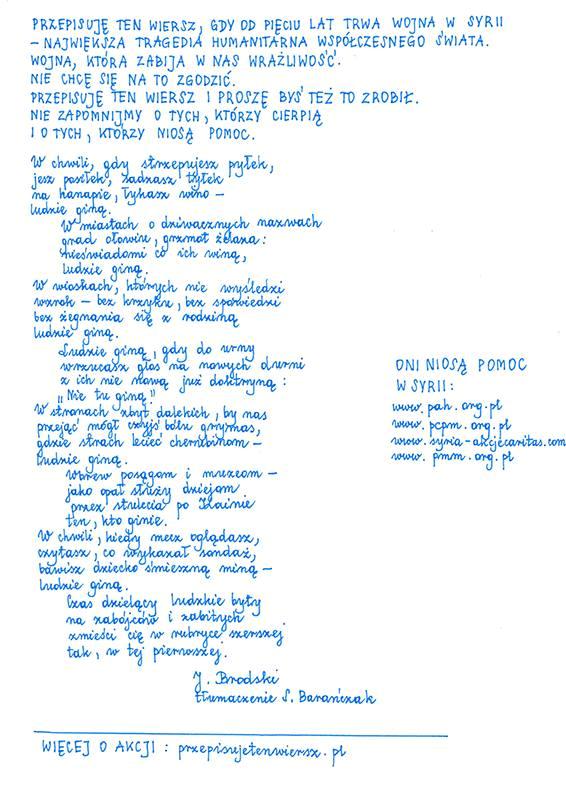 PRZEPISUJĘ TEN WIERSZ, GDY OD PIĘCIU LAT TRWA WOJNA W SYRII
– NAJWIĘKSZA TRAGEDIA HUMANITARNA WSPÓŁCZESNEGO ŚWIATA.
WOJNA, KTÓRA ZABIJA W NAS WRAŻLIWOŚĆ.
NIE CHCĘ SIĘ NA TO ZGODZIĆ.
PRZEPISUJĘ TEN WIERSZ I PROSZĘ BYŚ TEŻ TO ZROBIŁ.
NIE ZAPOMNIJMY O TYCH, KTÓRZY CIERPIĄ
I O TYCH, KTÓRZY NIOSĄ POMOC.
W chwili, gdy strzepujesz pyłek,
jesz posiłek, sadzasz tyłek
na kanapie, łykasz wino –
ludzie giną.
W miastach o dziwacznych nazwach
grad ołowiu, grzmot żelaza:
nieświadomi co ich winą,
ludzie giną.
W wioskach, których nie wyśledzi
wzrok – bez krzyku, bez spowiedzi
bez żegnania się z rodziną
ludzie giną.
Ludzie giną, gdy do urny
wrzucasz głos na nowych durni
z ich nie nową już doktryną:
"Nie tu giną"
W stronach zbyt dalekich, by nas
przejąć mógł czyjś bólu grymas,
gdzie strach lecieć cherubinom –
ludzie giną.
Wbrew posągom i muzeom –
jako opał służy dziejom
przez stulecia po Kainie
ten, kto ginie.
W chwili, kiedy mecz oglądasz,
czytasz, co wykazał sondaż,
bawisz dziecko śmieszną miną –
ludzie giną.
Czas dzielący ludzkie byty
na zabójców i zabitych
zmieści cię w rubryce szerszej
tak, w tej pierwszej.
J. Brodski
tłumaczenie S. Barańczak
ONI NIOSĄ POMOC
W SYRII:
www.pah.org.pl
www.pcpm.org.pl
www.syria-akcjecaritas.com
www.pmm.org.pl
WIĘCEJ O AKCJI: przepisujetenwiersz.pl